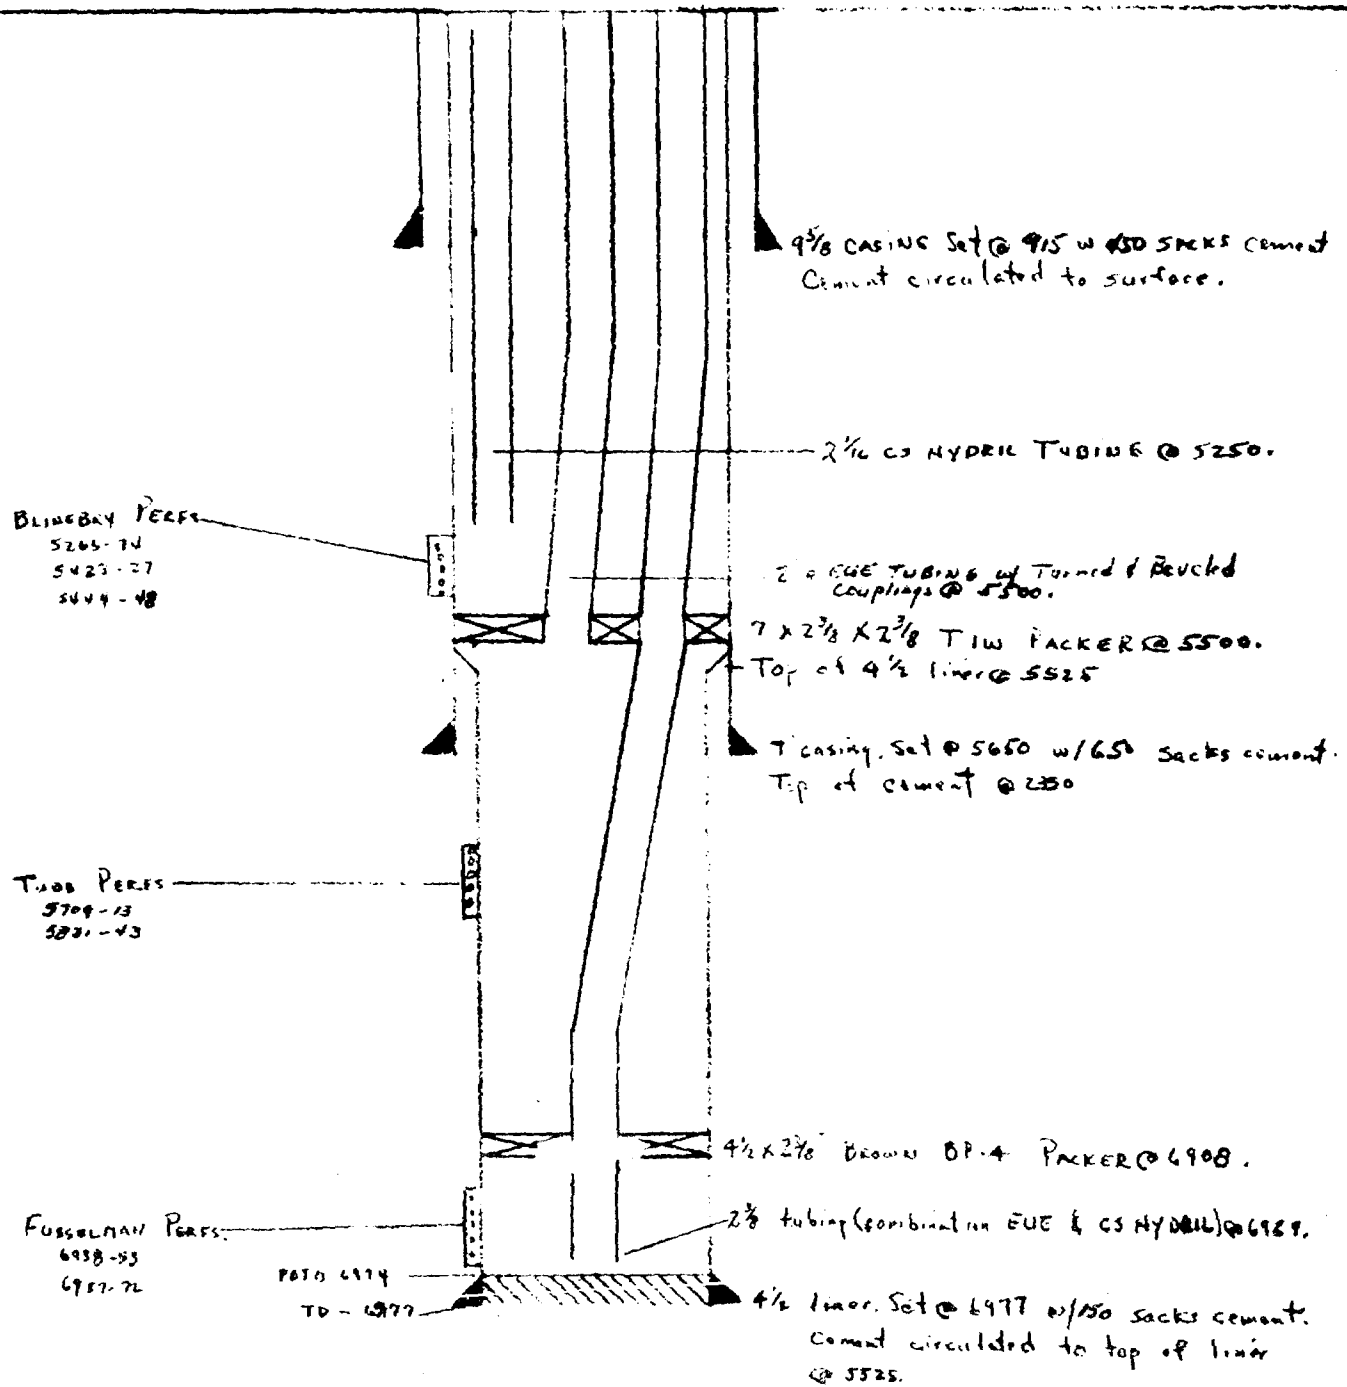 9 5/8 CASING Set @ 915 w 450 SACKS cement
Cement circulated to surface.
2 1/16 CS HYDRIL TUBING @ 5250.
BLINEBRY PERFS
5265-74
5423-27
5444-48
EUE TUBING w/ Turned & Beveled
Couplings @ 5500.
7 x 2 3/8 x 2 3/8 TIW PACKER @ 5500.
Top of 4 1/2 liner @ 5525
7" casing. Set @ 5650 w/650 sacks cement.
Top of cement @ 2350
TUBB PERFS
5709-13
-43
4 1/2 x 2 3/8 BROWN BP-4 PACKER @ 6908.
FUSSELMAN PERFS.
6938-53
6957-72
2 3/8 tubing (combination EUE & CS HYDRIL) @
PBTD 6974
TD - 6977
4 1/2 liner. Set @ 6977 w/150 sacks cement.
Cement circulated to top of liner
@ 5525.